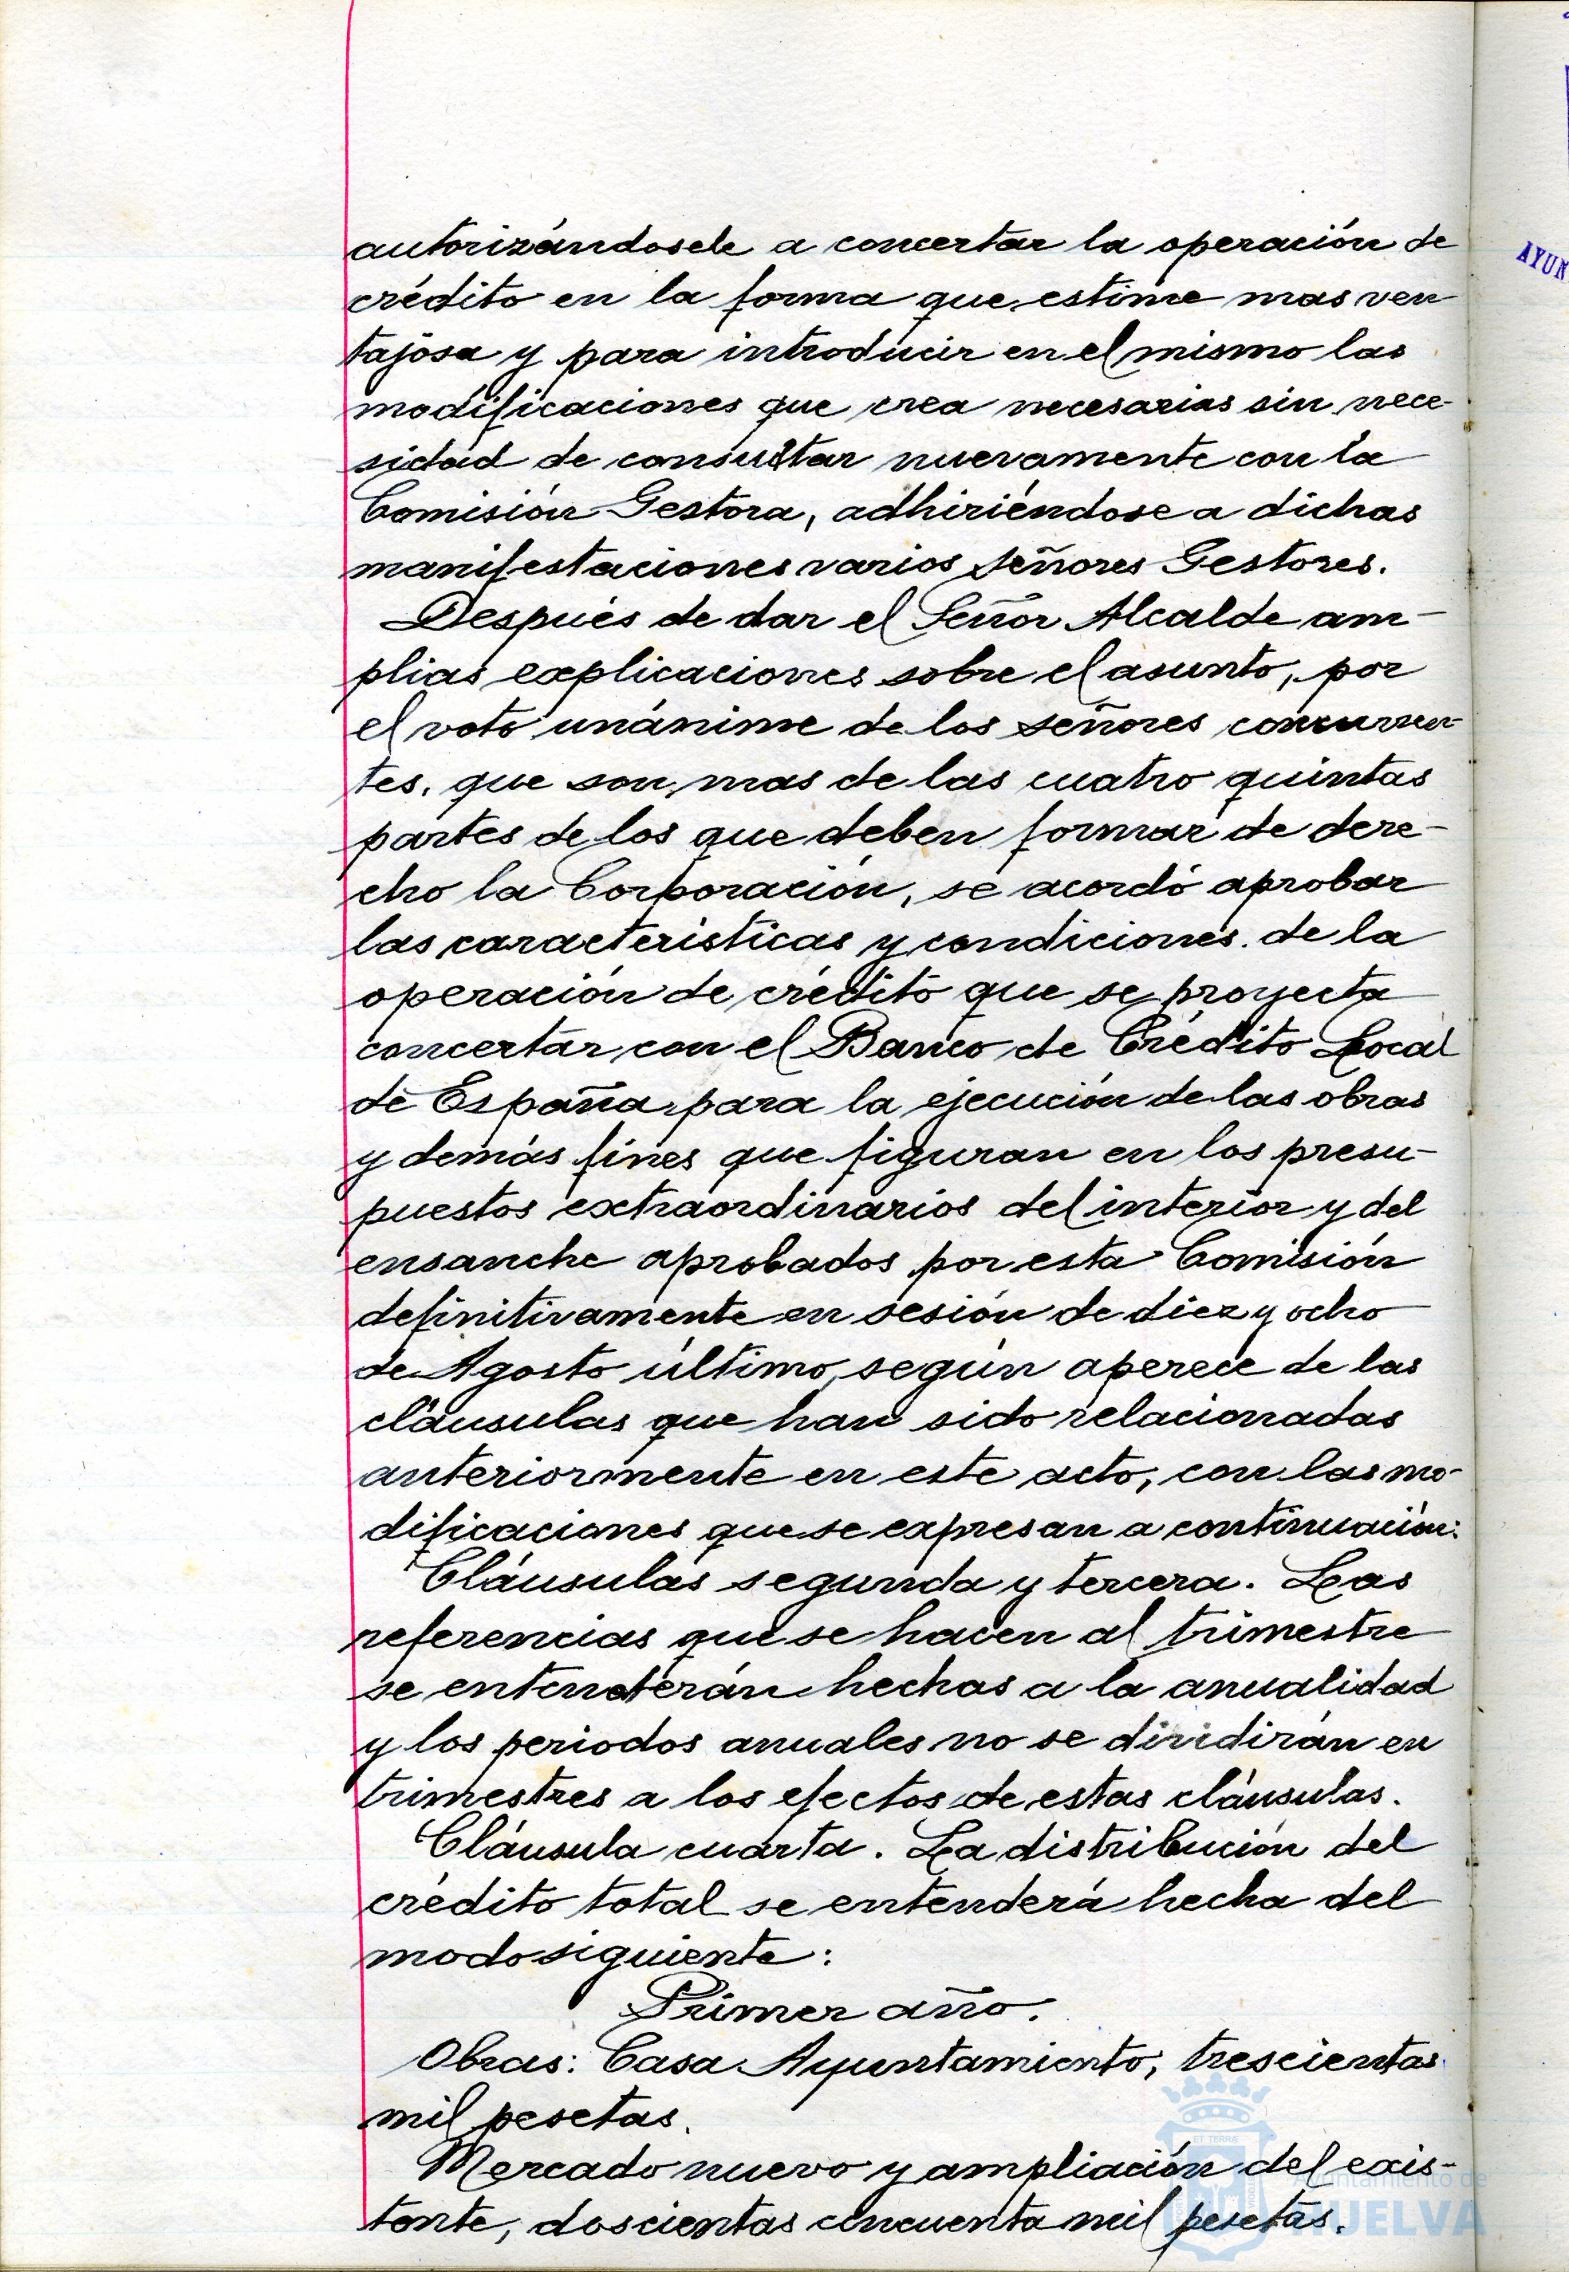 autorizándosele a concertar la operación de
crédito en la forma que estime mas ven
tajosa y para introducir en el mismo las
modificaciones que crea necesarias sin nece-
sidad de consultar nuevamente con la
Comisión Gestora, adhiriéndose a dichas
manifestaciones varios señores Gestores.
Después de dar el Señor Alcalde am-
plias explicaciones sobre el asunto, por
el voto unánime de los señores concurren-
tes, que son mas de las cuatro quintas
partes de los que deben formar de dere-
cho la Corporación, se acordó aprobar
las caracteristicas y condiciones de la
operación de crédito que se proyecta
concertar con el Banco de Crédito Local
de España para la ejecución de las obras
y demás fines que figuran en los presu-
puestos extraordinarios del interior y del
ensanche aprobados por esta Comisión
definitivamente en sesión de diez y ocho
de Agosto último, según aperece de las
cláusulas que han sido relacionadas
anteriormente en este acto, con las mo-
dificaciones que se expresan a continuación:
Cláusulas segunda y tercera. Las
referencias que se hacen al trimestre
se entenderán hechas a la anualidad
y los periodos anuales no se dividirán en
trimestres a los efectos de estas cláusulas.
Cláusula cuarta. La distribución del
crédito total se entenderá hecha del
modo siguiente:
Primer año.
Obras: Casa Ayuntamiento, trescientas
mil pesetas.
Mercado nuevo y ampliación del exis-
tente, doscientas cincuenta mil pesetas.
AYUN
Ayuntamiento de
HUELVA